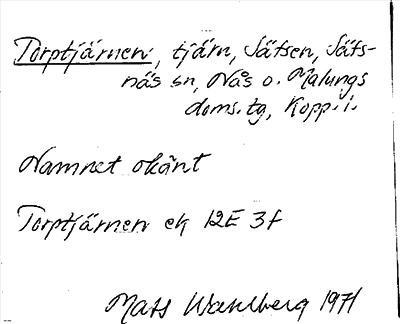 Torptjärnen, tjärn, Sätsen, Säfs-
näs sn, Nås o. Malungs
doms.tg, Kopp. l.
Namnet okänt
Torptjärnen ek 12E 3f
Mats Wahlberg 1971